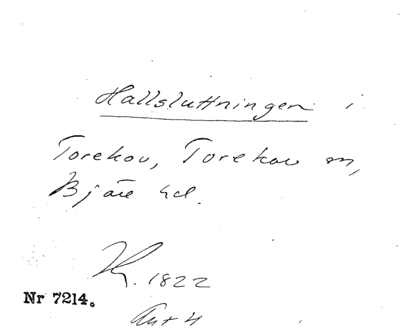 Hallsluttningen i
Torekov, Torekov sn,
Bjäre hd.
Kr. 1822
Nr 7214.
Ant 4